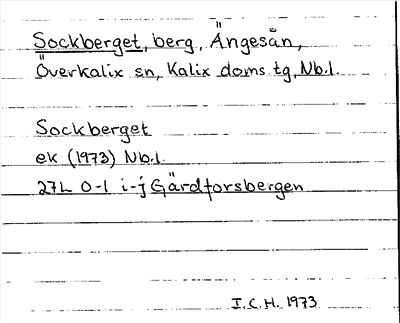 Sockberget, berg, Ängesån,
Överkalix sn, Kalix doms.tg, Nb.l.
Sockberget
ek (1973) Nb.l.
27L 0-1 i-j Gärdforsbergen
I.C.H. 1973